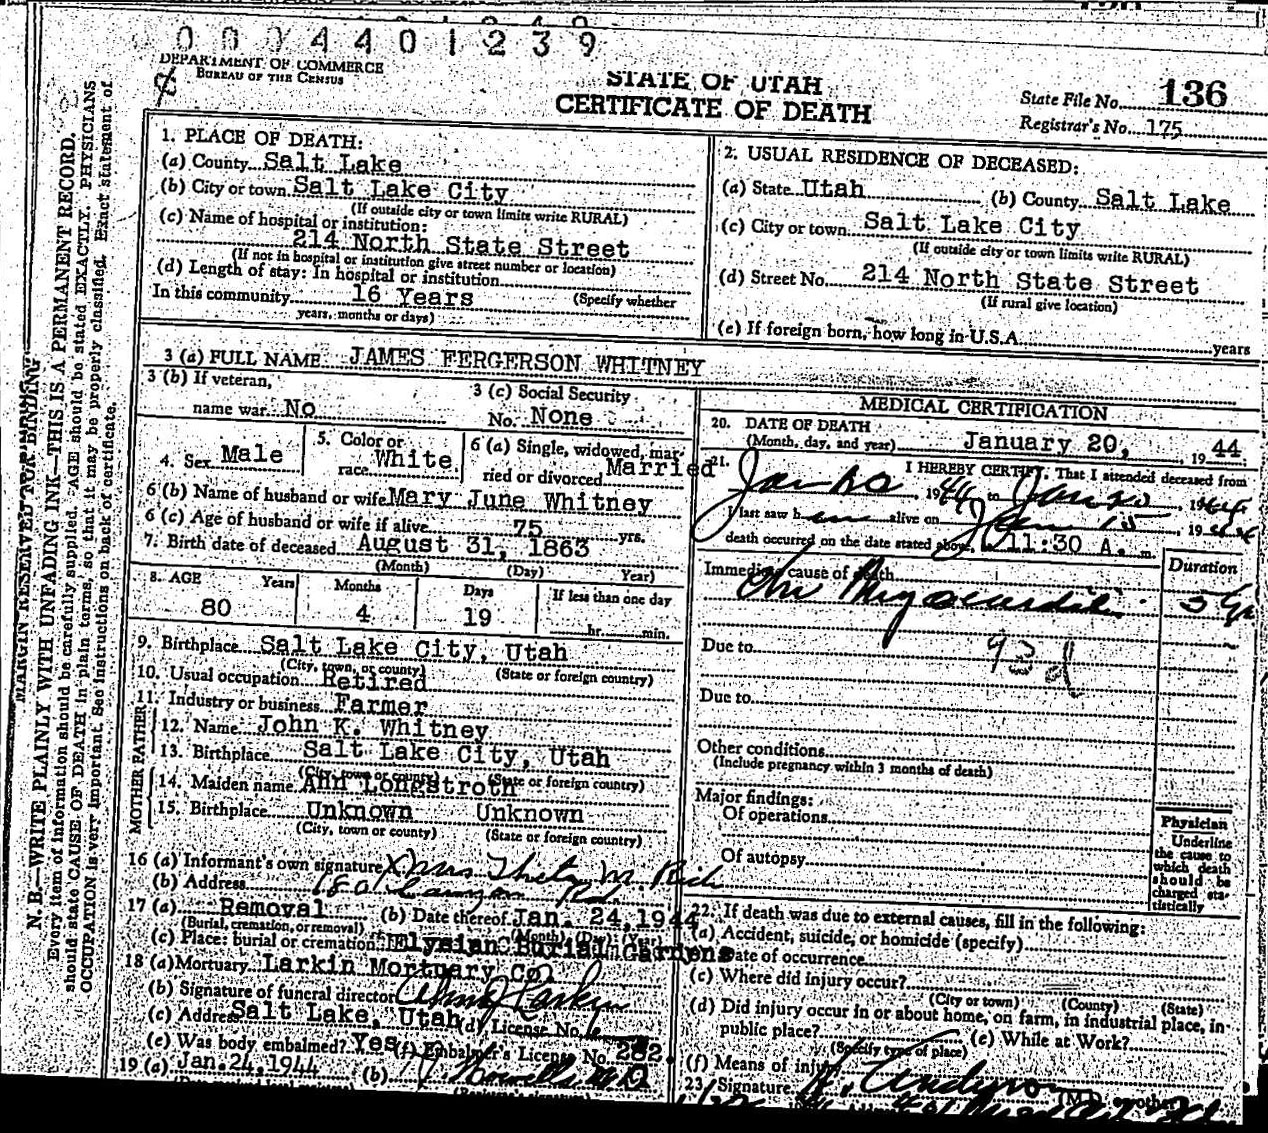 0004401239
DEPARTMENT OF COMMERCE
BUREAU OF THE CENSUS
STATE OF UTAH
CERTIFICATE OF DEATH
State File No. 136
Registrar's No. 175
MARGIN RESERVED FOR BINDING
N. B.—WRITE PLAINLY WITH UNFADING INK—THIS IS A PERMANENT RECORD.
Every item of information should be carefully supplied. AGE should be stated EXACTLY. PHYSICIANS
should state CAUSE OF DEATH in plain terms, so that it may be properly classified. Exact statement of
OCCUPATION is very important. See instructions on back of certificate.
1. PLACE OF DEATH:
(a) County Salt Lake
(b) City or town Salt Lake City
(If outside city or town limits write RURAL)
(c) Name of hospital or institution:
214 North State Street
(If not in hospital or institution give street number or location)
(d) Length of stay: In hospital or institution
In this community 16 Years (Specify whether
years, months or days)
2. USUAL RESIDENCE OF DECEASED:
(a) State Utah (b) County Salt Lake
(c) City or town Salt Lake City
(If outside city or town limits write RURAL)
(d) Street No. 214 North State Street
(If rural give location)
(e) If foreign born, how long in U.S.A. years
3 (a) FULL NAME JAMES FERGERSON WHITNEY
3 (b) If veteran,
name war No
3 (c) Social Security
No. None
4. Sex Male
5. Color or
race White
6 (a) Single, widowed, mar-
ried or divorced Married
6 (b) Name of husband or wife Mary June Whitney
6 (c) Age of husband or wife if alive 75 yrs.
7. Birth date of deceased August 31, 1863
(Month) (Day) Year)
8. AGE Years Months Days If less than one day
80 4 19 hr. min.
9. Birthplace Salt Lake City, Utah
(City, town, or county) (State or foreign country)
10. Usual occupation Retired
11. Industry or business Farmer
FATHER
12. Name John K. Whitney
13. Birthplace Salt Lake City, Utah
(City, town or county) (State or foreign country)
MOTHER
14. Maiden name Ann Longstroth
15. Birthplace Unknown Unknown
(City, town or county) (State or foreign country)
16 (a) Informant's own signature X Mrs Theta M. Rich
(b) Address 180 Canyon Rd.
17 (a) Removal (b) Date thereof Jan. 24, 1944
(Burial, cremation, or removal) (Month) (Day) (Year)
(c) Place: burial or cremation Elysian Burial Gardens
18 (a) Mortuary Larkin Mortuary Co
(b) Signature of funeral director Larkin
(c) Address Salt Lake, Utah (d) License No.
(e) Was body embalmed? Yes (f) Embalmer's License No. 282.
19 (a) Jan. 24, 1944 (b) M.D.
MEDICAL CERTIFICATION
20. DATE OF DEATH
(Month, day, and year) January 20, 19 44
21. I HEREBY CERTIFY, That I attended deceased from
Jan 1944 to Jan 20, 1944
I last saw him alive on Jan 1944
death occurred on the date stated above, 11:30 A. m.
Duration
Immediate cause of death
Chr Myocarditis 5 yr
Due to 93 d
Due to
Other conditions
(Include pregnancy within 3 months of death)
Major findings:
Of operations
Of autopsy
Physician
Underline
the cause to
which death
should be
charged sta-
tistically
22. If death was due to external causes, fill in the following:
(a) Accident, suicide, or homicide (specify)
Date of occurrence
(c) Where did injury occur?
(City or town) (County) (State)
(d) Did injury occur in or about home, on farm, in industrial place, in
public place? (e) While at Work?
(Specify type of place)
(f) Means of injury
23. Signature (M.D. or other